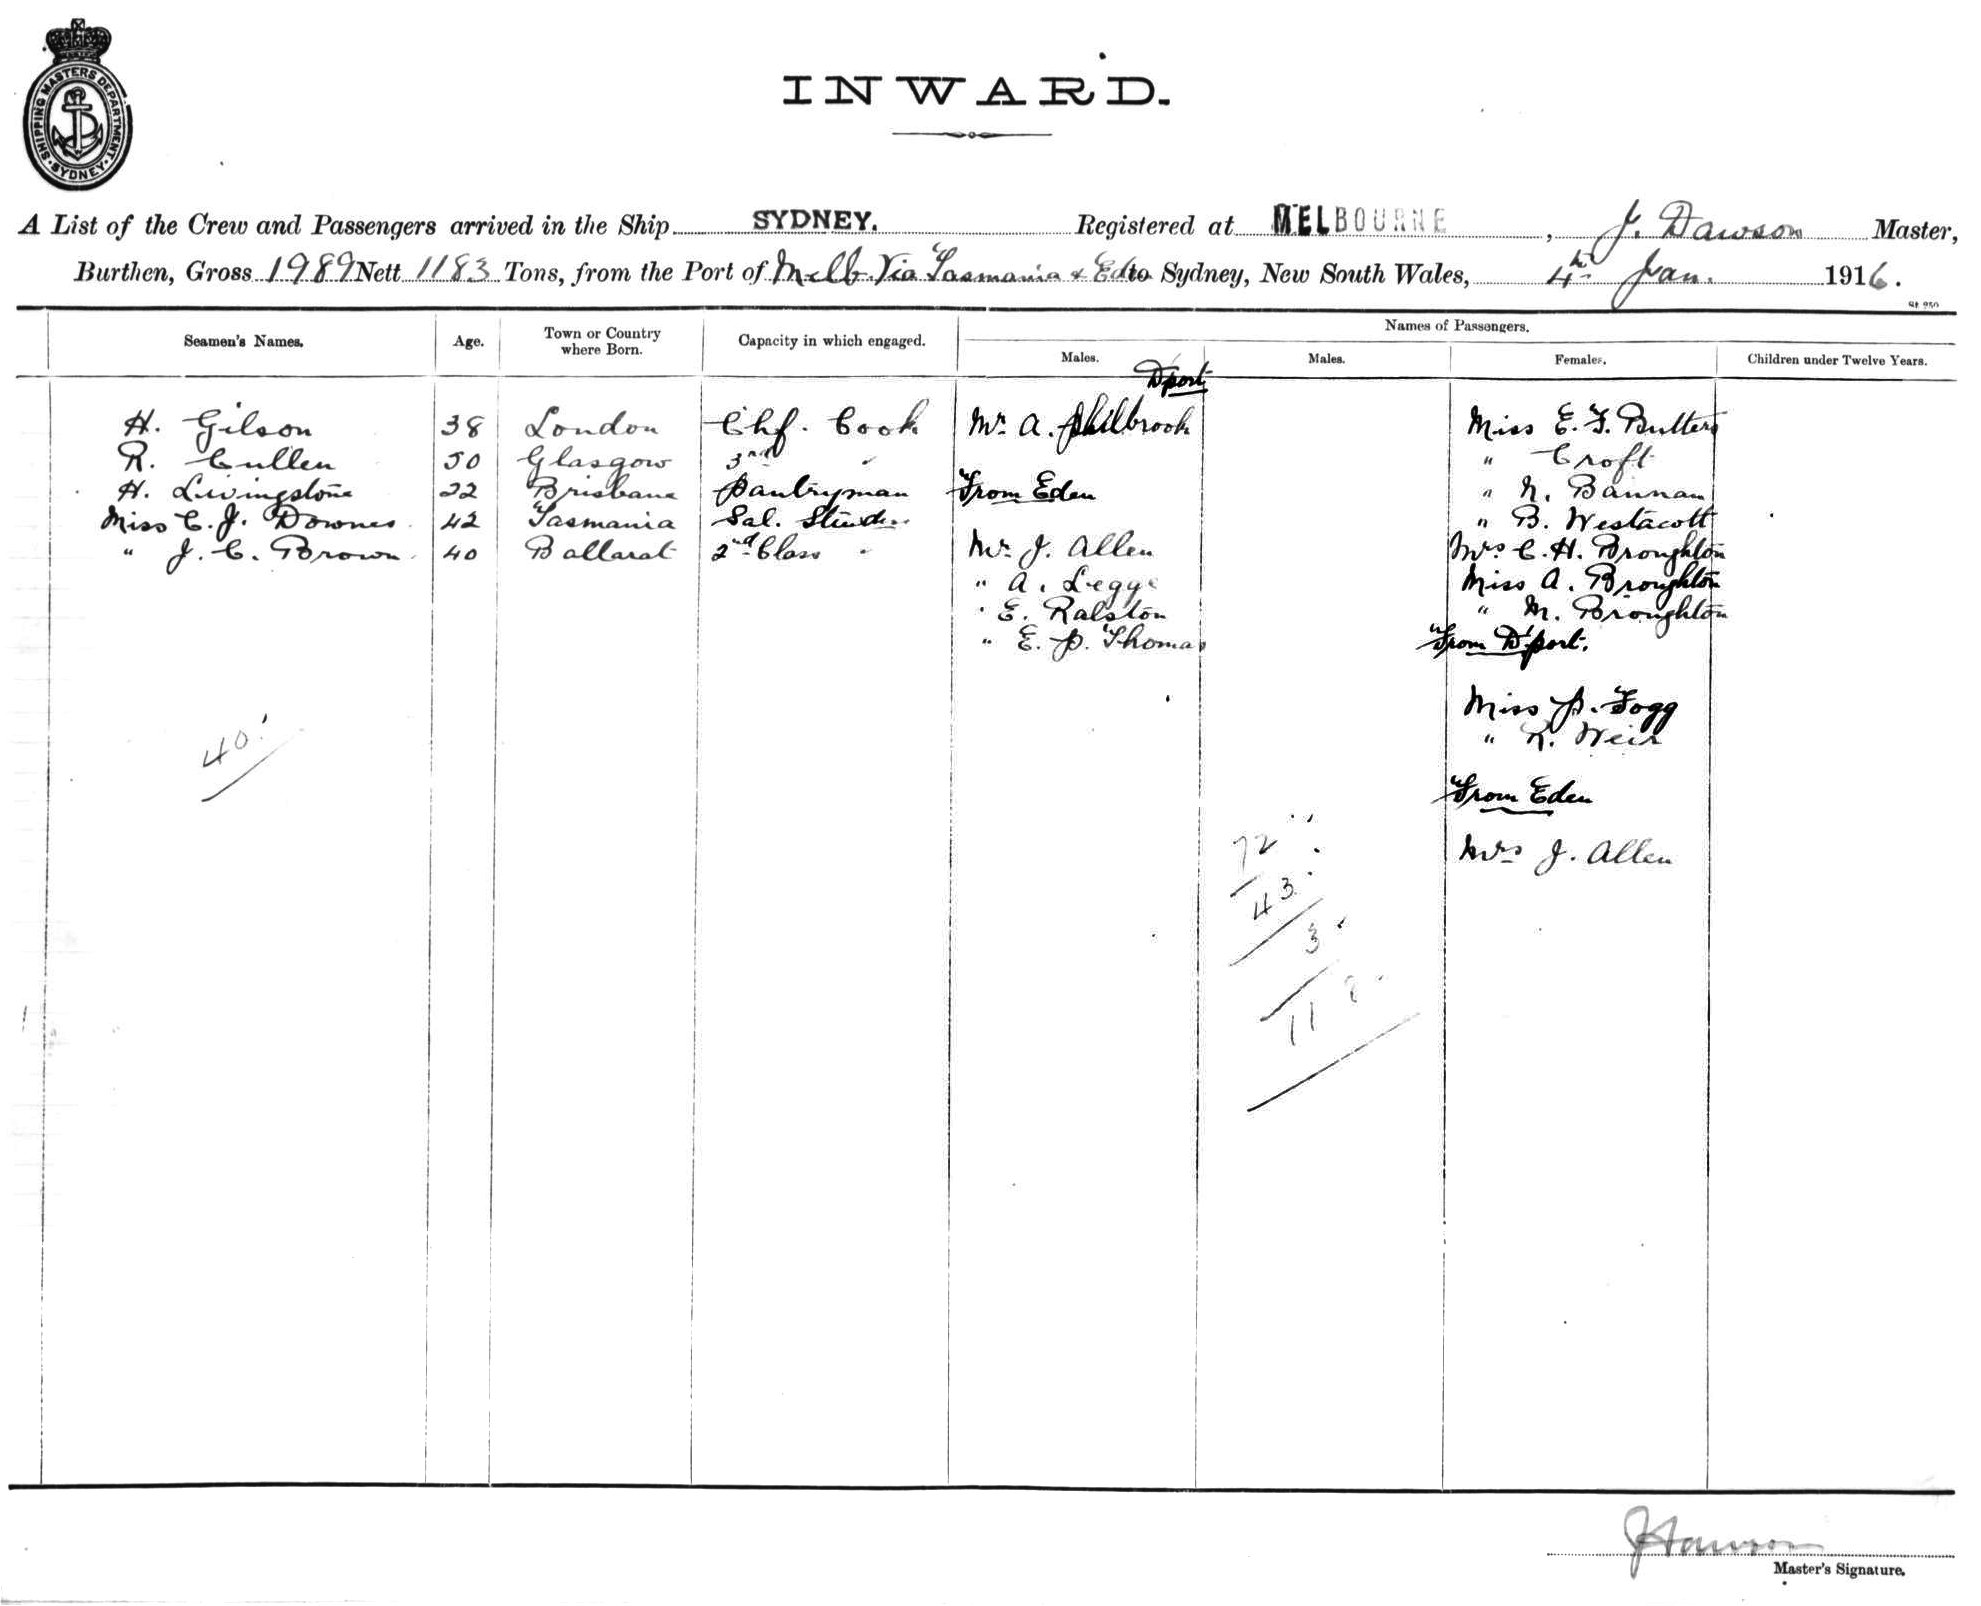 SHIPPING MASTERS DEPARTMENT. SYDNEY
INWARD.
A List of the Crew and Passengers arrived in the Ship SYDNEY. Registered at MELBOURNE, J. Dawson Master,
Burthen, Gross 1989 Nett 1183 Tons, from the Port of Melb. Via Tasmania & Eden to Sydney, New South Wales, 4th Jan. 1916.
Names of Passengers.
Seamen's Names. Age. Town or Country where Born. Capacity in which engaged. Males. Males. Females. Children under Twelve Years.
D'port
H. Gilson 38 London Chf. Cook Mr. A. Philbrook Miss E. F. Butters
R. Cullen 50 Glasgow 3rd " " Croft
H. Livingstone 22 Brisbane Pantryman From Eden " N. Bannan
Miss C. J. Downes 42 Tasmania Sal. " B. Westacott
" J. C. Brown 40 Ballarat 2nd Class " Mr. J. Allen Mrs C. H. Broughton
" A. Legge Miss A. Broughton
" E. Ralston " M. Broughton
" E. P. Thomas From D'port.
Miss P. Fogg
40 " R. Weir
From Eden
72
Mrs J. Allen
43
3
11
J Dawson
Master's Signature.